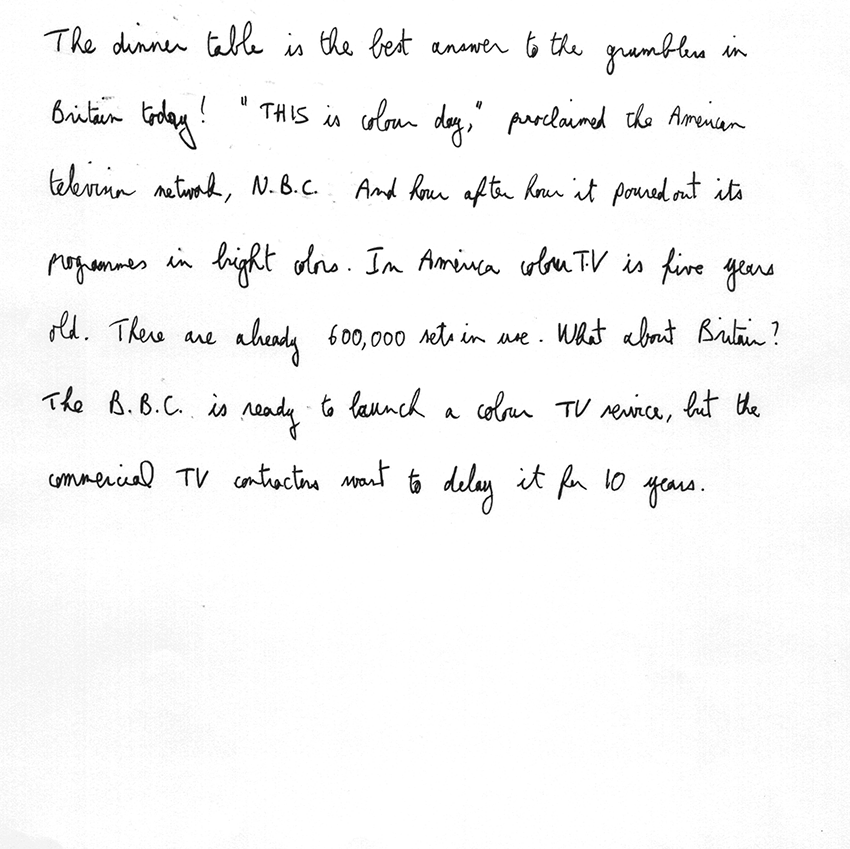 The dinner table is the best answer to the grumblers in
Britain today! "THIS is colour day," proclaimed the American
television network, N.B.C. And hour after hour it poured out its
programmes in bright colors. In America colour T.V is five years
old. There are already 600,000 sets in use. What about Britain?
The B.B.C. is ready to launch a colour TV service, but the
commercial TV contractors want to delay it for 10 years.